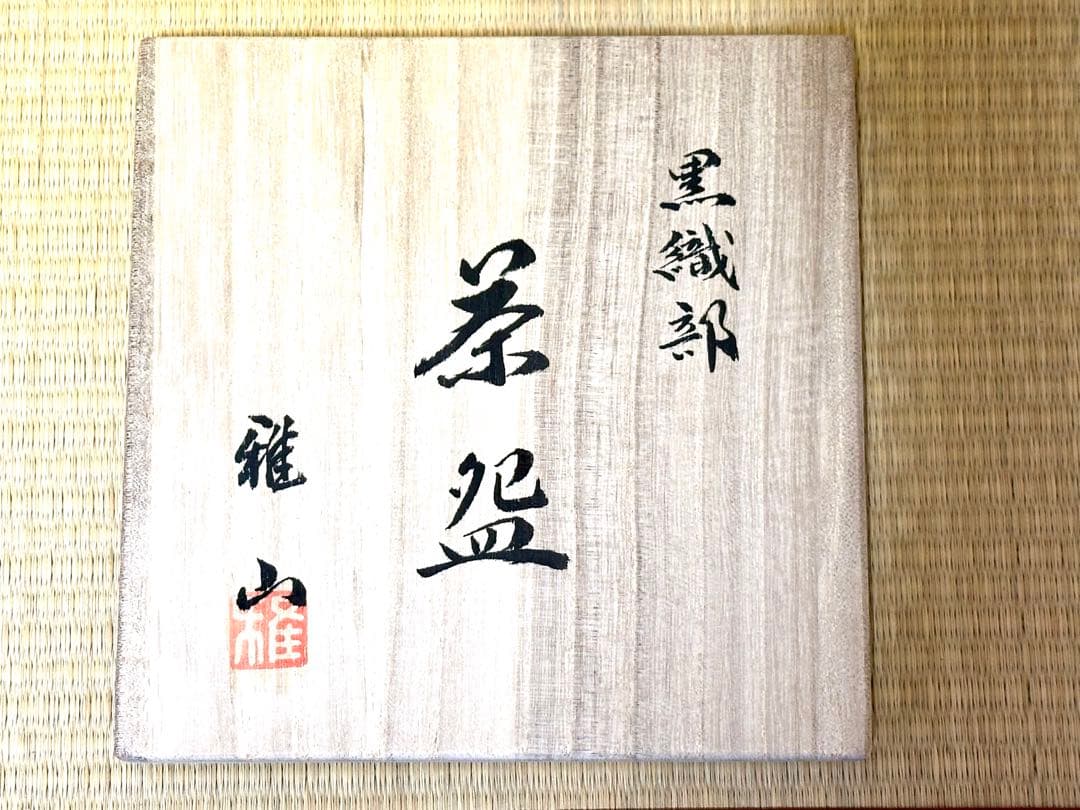 黒織部
茶盌
雅山
雅